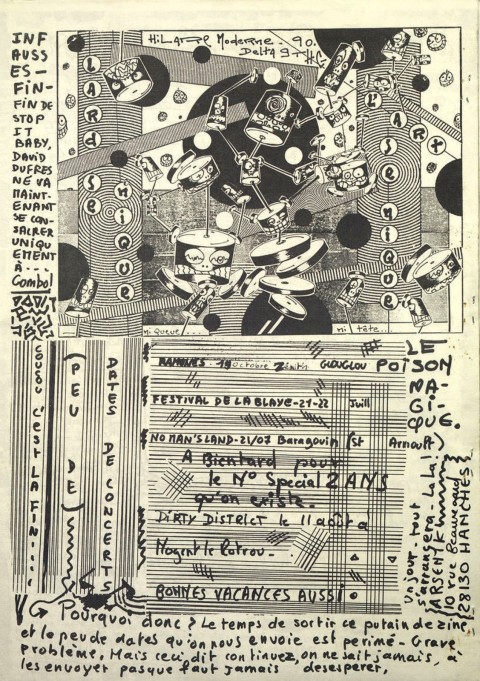 INF
AUSS
ES-
FIN-
FIN DE
STOP
IT
BABY,
DAVID
DUFRES
NE VA
MAINT-
ENANT
SE CON-
SACRER
UNIQU
EMENT
À...
Combo!
HiLARe Moderne. 90.
Delta 9 THC
LARd
Se
nique
L'ARt
Se
nique
ni queue....
ni tête....
COUCOU C'EST LA FIN....
(PEU DE)
DATES DE CONCERTS
RAMONES 19 Octobre Zénith GLOUGLOU
FESTIVAL DE LA BLAYE-21-22 Juill
NO MAN'S LAND-21/07 Baragouin (St Arnoult)
A Bientard pour
le No Special 2 ANS
qu'on existe.
DIRTY DISTRICT le 11 août à
Nogent le Rotrou.
BONNES VACANCES AUSSI
LE
POISON
MA-
GI-
QUE.
Un jour-tout
s'arrangera-LaLa!
{ARSENYK
10 rue Beaurepaire
28130 HANCHES}
Pourquoi donc? Le temps de sortir ce putain de zine
et le peu de dates qu'on nous envoie est perimé-Grave
problème. Mais ceci dit continuez, on ne sait jamais, à
les envoyer pasque faut jamais desesperer,